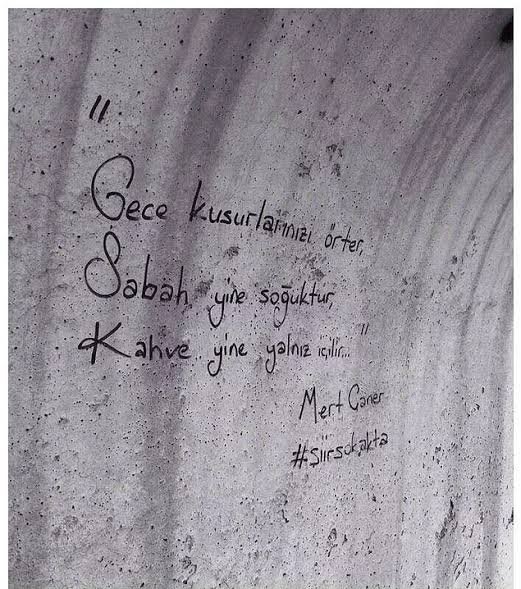 "
Gece kusurlarınızı örter,
Sabah yine soğuktur,
Kahve yine yalnız içilir... "
Mert Caner
#siirsokakta